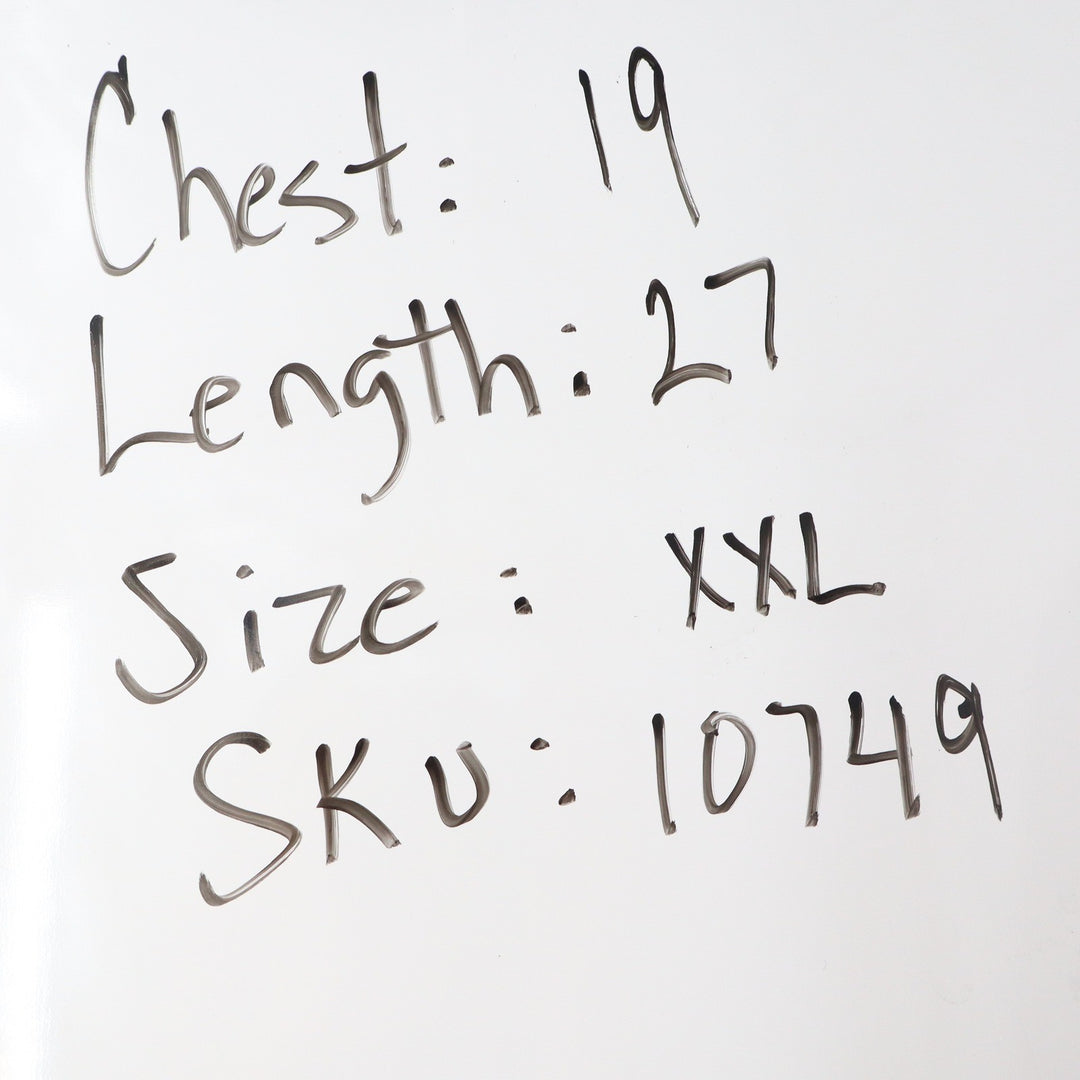 Chest: 19
Length: 27
Size: XXL
SKU: 10749